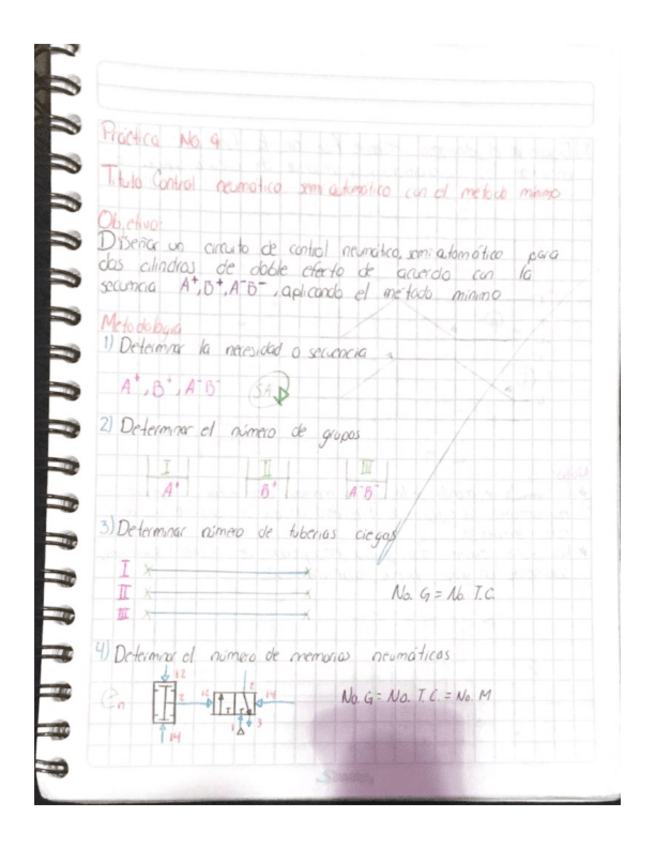 Práctica No. 9
Titulo Control neumatico semi automatico con el metodo minimo
Objetivo:
Diseñar un circuito de control neumático, semi atomático para
dos cilindros de doble efecto de acuerdo con la
secuencia A⁺, B⁺, A⁻B⁻, aplicando el método minimo
Metodologia
1) Determinar la necesidad o secuencia
A⁺, B⁺, A⁻B⁻ SA
2) Determinar el número de grupos
I II III
A⁺ B⁺ A⁻B⁻
3) Determinar número de tuberias ciegas
I
II No. G = No. T.C.
III
4) Determinar el número de memorias neumáticas
12
en 2 12 2 14 No. G = No. T.C. = No. M
14 1 3